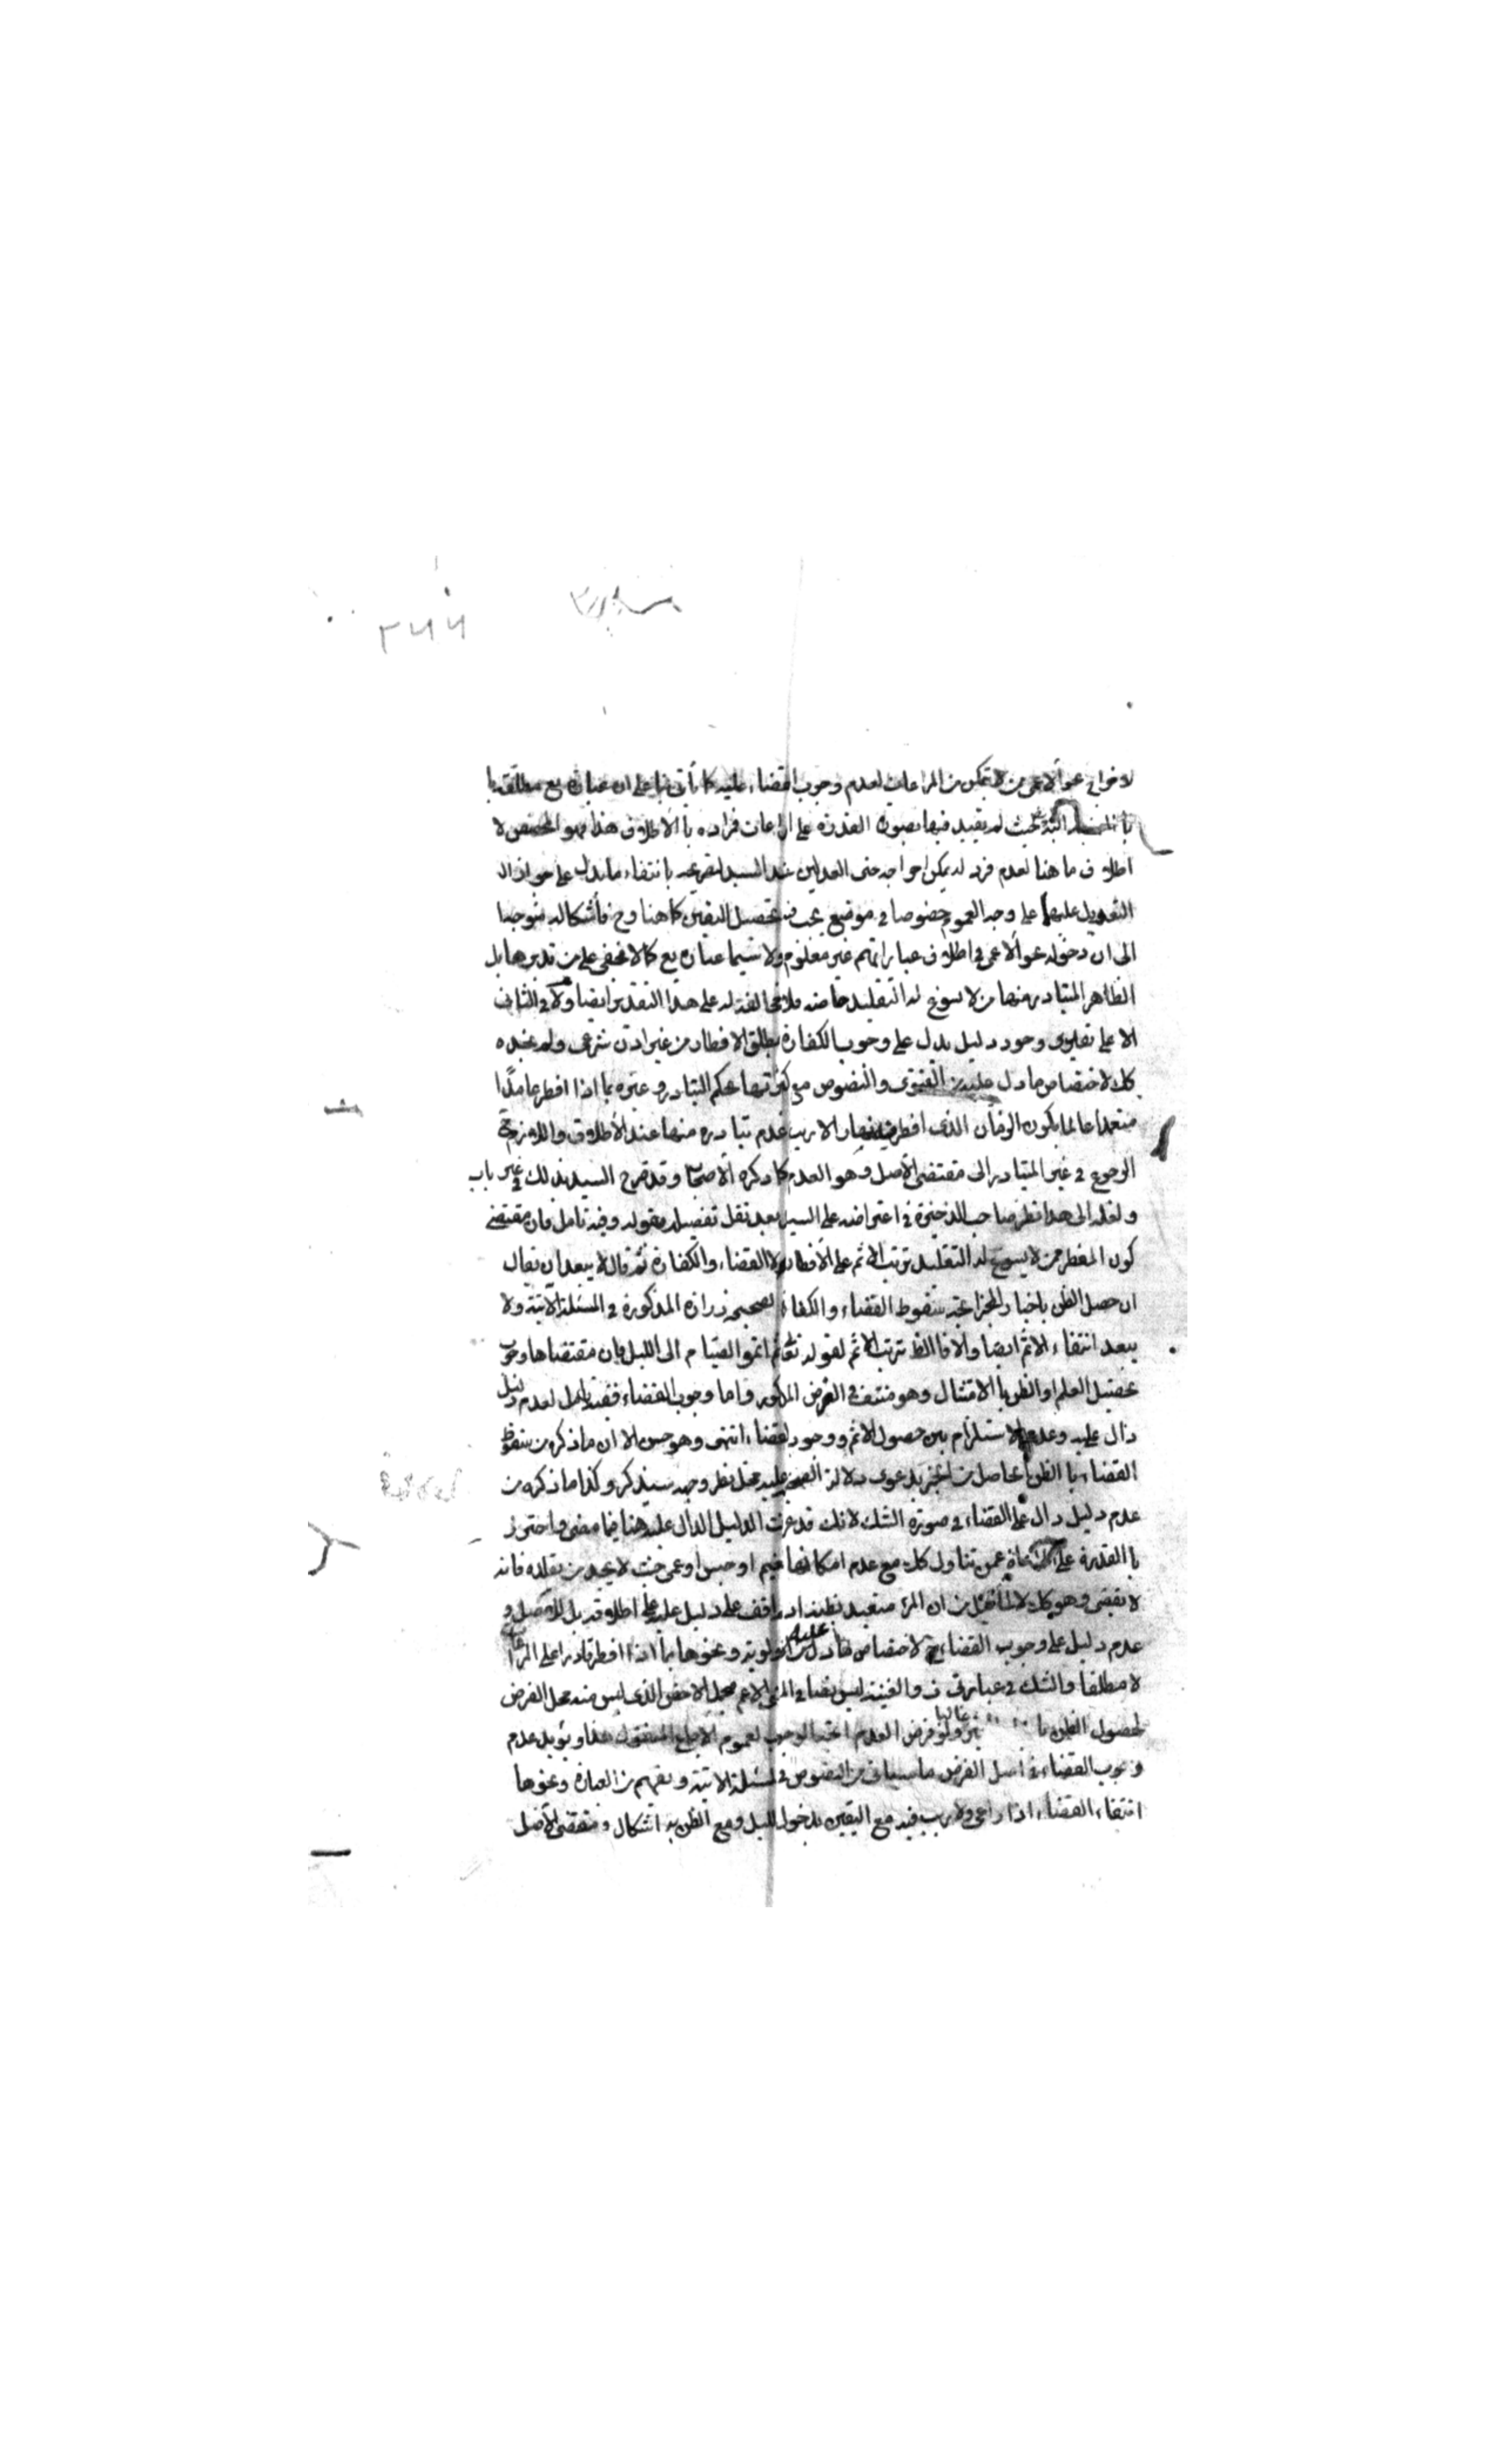 ٢٦٦
لاخراج نحو الاعمى ممن لا يتمكن من المراعات لعدم وجوب القضاء عليه كما يأتي بناء على ان عبارة يع مطلقة
بالنسبة اليه حيث لم يقيد فيها بصورة القدرة على المراعات فمراده بالاطلاق هذا فهو المخصص لا
اطلاق ما هنا لعدم فرد له يمكن اخراجه حتى العدلين عند السيد لتصريحه بانتفاء ما يدل على جواز ال
التعويل عليهما على وجه العموم خصوصا في موضع يجب فيه تحصيل اليقين كما هنا وح فاشكاله متوجها
الى ان دخول نحو الاعمى في اطلاق عبايراتهم غير معلوم ولا سيما عبارة يع كما لا يخفى على من تدبرها بل
الظاهر المتبادر منها من لا يسوغ له التقليد خاصة فلا مخالفة له على هذا التقدير ايضا ولا في الثاني
الا على تقدير وجود دليل يدل على وجوب الكفارة بمطلق الافطار من غير اذن شرعي ولم نجده
كك لاختصاص ما دل عليه من الفتوى والنصوص مع كثرتها بحكم التبادر وغيره بما اذا افطر عامدا
متعمدا عالما بكون الزمان الذي افطر فيه نهارا لا ريب عدم تبادره منها عند الاطلاق واللازم ح
الرجوع في غير المتبادر الى مقتضى الاصل وهو العدم كما ذكره الاصحاب وقد صرح السيد بذلك في غير باب
ولعله الى هذا نظر صاحب الذخيرة في اعتراضه على السيد بعد نقل تفصيله بقوله وفيه تامل فان مقتضى
كون المفطر ممن لا يسوغ له التقليد ترتب الاثم على الافطار لا القضاء والكفارة ثم قال لا يبعد ان يقال
ان حصل الظن باخبار المخبر اتجه سقوط القضاء والكفارة لصحيحة زرارة المذكورة في المسئلة الاتية ولا
يبعد انتفاء الاثم ايضا والا فالظ ترتب الاثم لقوله تعالى ثم اتموا الصيام الى الليل فان مقتضاها وجوب
تحصيل العلم او الظن بالامتثال وهو منتف في الفرض المذكور واما وجوب القضاء ففيه تامل لعدم دليل
دال عليه وعدم الاستلزام بين حصول الاثم ووجوب القضاء انتهى وهو حسن الا ان ما ذكره من سقوط
القضاء بالظن الحاصل من المخبر بدعوى دلالة الصحيحة عليه محل نظر وجهه سيذكر وكذا ما ذكره من
عدم دليل دال على القضاء في صورة الشك لانك قد عرفت الدليل الدال عليه هنا فيما مضى واحترز
بالقدرة على المراعاة عمن تناول كك مع عدم امكانها لغيم او حبس او عمى حيث لا يجد من يقلده فانه
لا يقضي وهو كك لا لما قيل من ان المرء متعبد بظنه اذ لم اقف على دليل عليه على اطلاقه بل للاصل و
عدم دليل على وجوب القضاء ح لاختصاص ما دل عليه من الاولوية ونحوها بما اذا افطر قادرا على المراعات
لا مطلقا والشك في عبارتي ف والغنية ليس نصا في المعنى الاعم فيحمل الاخص الذي ليس منه محل الفرض
لحصول الظن با غالبا ولو فرض العدم اتجه الوجوب لعموم الاجماع المنقول هذا ويؤيد عدم
وجوب القضاء في اصل الفرض ما سيأتي من النصوص في المسئلة الاتية ويفهم من العبارة ونحوها
انتفاء القضاء اذا راعى ولا ريب فيه مع اليقين بدخول الليل ومع الظن به اشكال ومقتضى الاصل